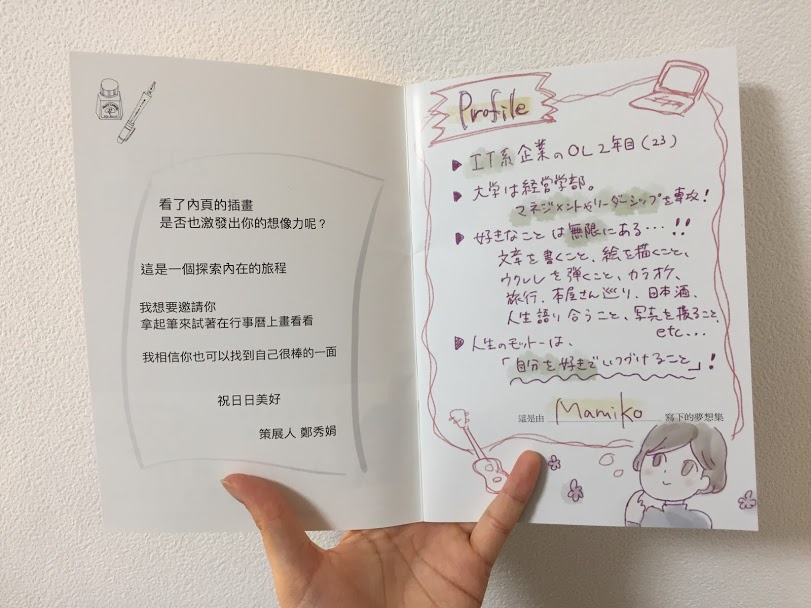 看了內頁的插畫
是否也激發出你的想像力呢？
這是一個探索內在的旅程
我想要邀請你
拿起筆來試著在行事曆上畫看看
我相信你也可以找到自己很棒的一面
祝日日美好
策展人 鄭秀娟
Profile
IT系企業のOL2年目(23)
大学は経営学部。
マネジメントやリーダーシップを専攻！
好きなことは無限にある…!!
文章を書くこと、絵を描くこと、
ウクレレを弾くこと、カラオケ、
旅行、本屋さん巡り、日本酒、
人生語り合うこと、写真を撮ること、
etc...
人生のモットーは、
「自分を好きでいつづけること」！
這是由 Mamiko 寫下的夢想集